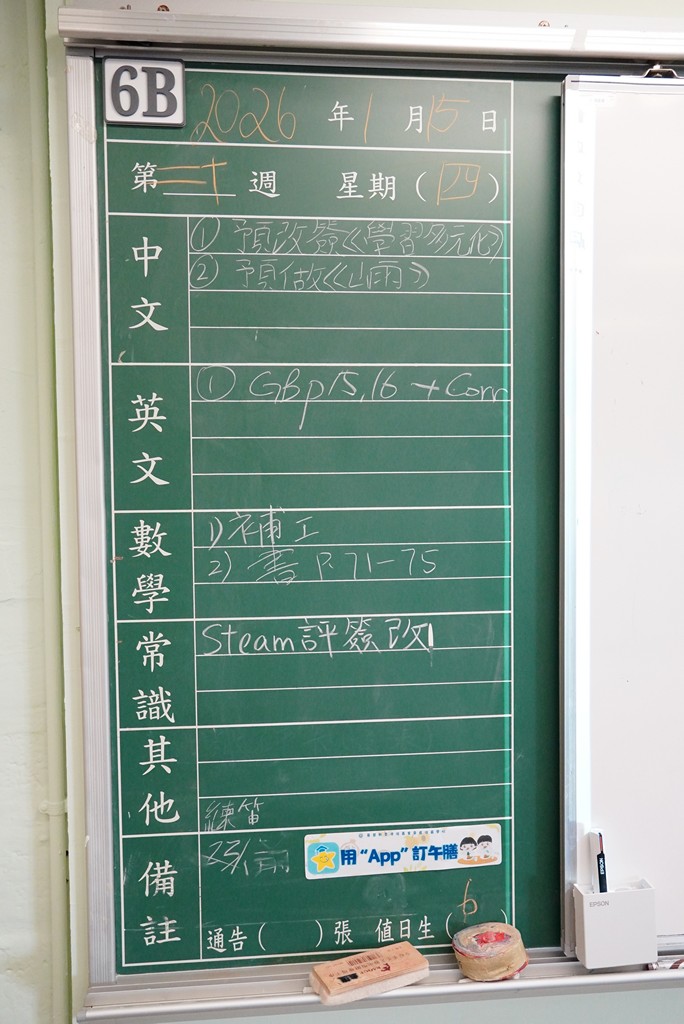 6B
2026 年 1 月 15 日
第 二十 週 星期(四)
中文
① 預改簽《學習多元化》
② 預做《山雨》
英文
① GBp15,16 + Corr
數學
1) 補工
2) 書 P.71-75
常識
Steam評簽改
其他
練笛
備註
用“App”訂午膳
通告( )張 值日生(6)
EPSON